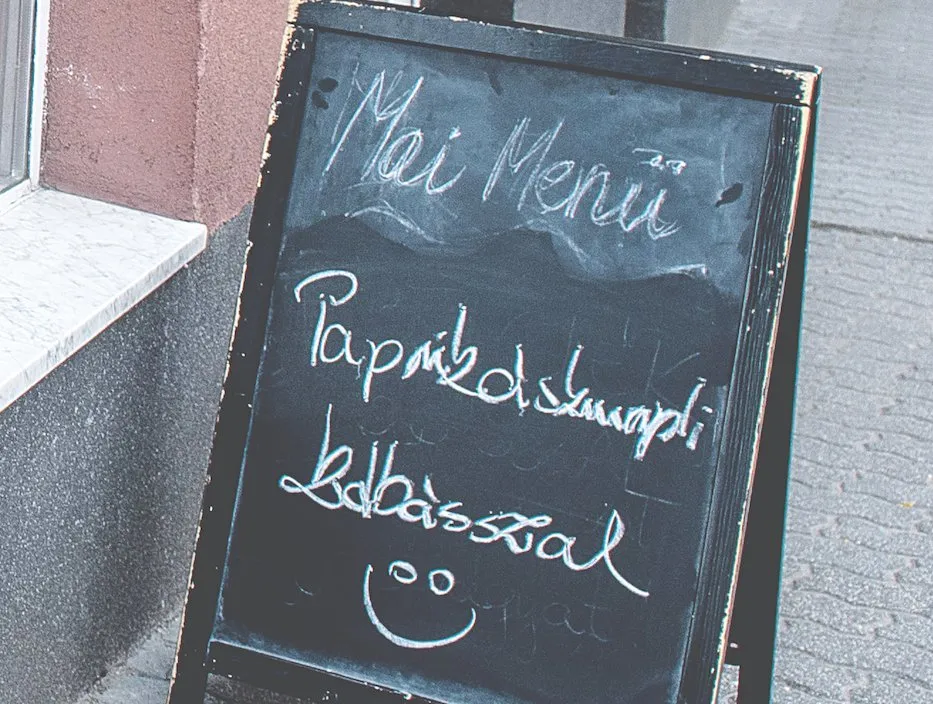 Mai Menü
Paprikáskrumpli
kolbásszal